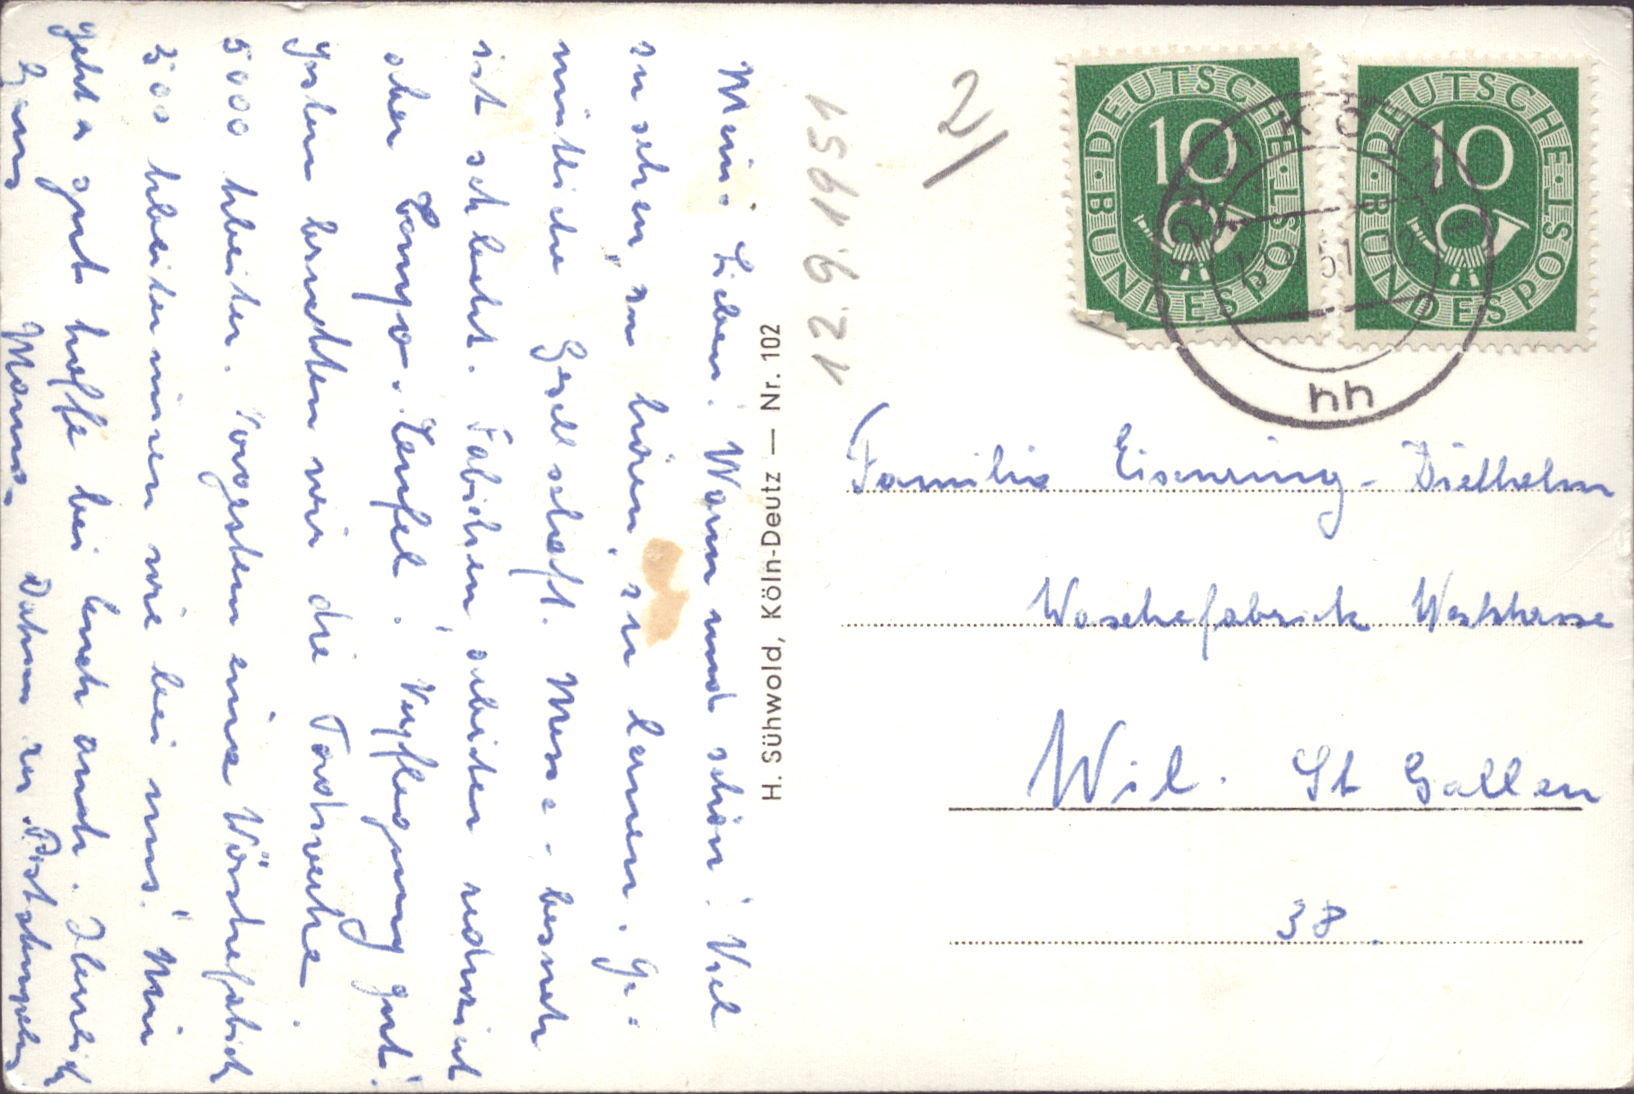 Meine Lieben! Warm und schön! Viel
zu sehen, zu hören, zu lernen. Ge-
mütliche Gesellschaft. Messe-besuch
ist schlecht. Fabriken arbeiten reduziert
aber Tempo. Verpflegung gut!
Gestern besuchten wir die Fordwerke
5000 Arbeiter. Vorgestern eine Wäschefabrik
500 Arbeiterinnen wie bei uns! Mir
geht's gut hoffe bei Euch auch. Herzlich
Euer Mama.
H. Sühwold, Köln-Deutz — Nr. 102
12.9.1951
2/
DEUTSCHE BUNDESPOST 10
DEUTSCHE BUNDESPOST 10
KÖLN
hh
Familie Eisenring-Diethelm
Wäschefabrik Weststrasse
Wil. St Gallen
38.